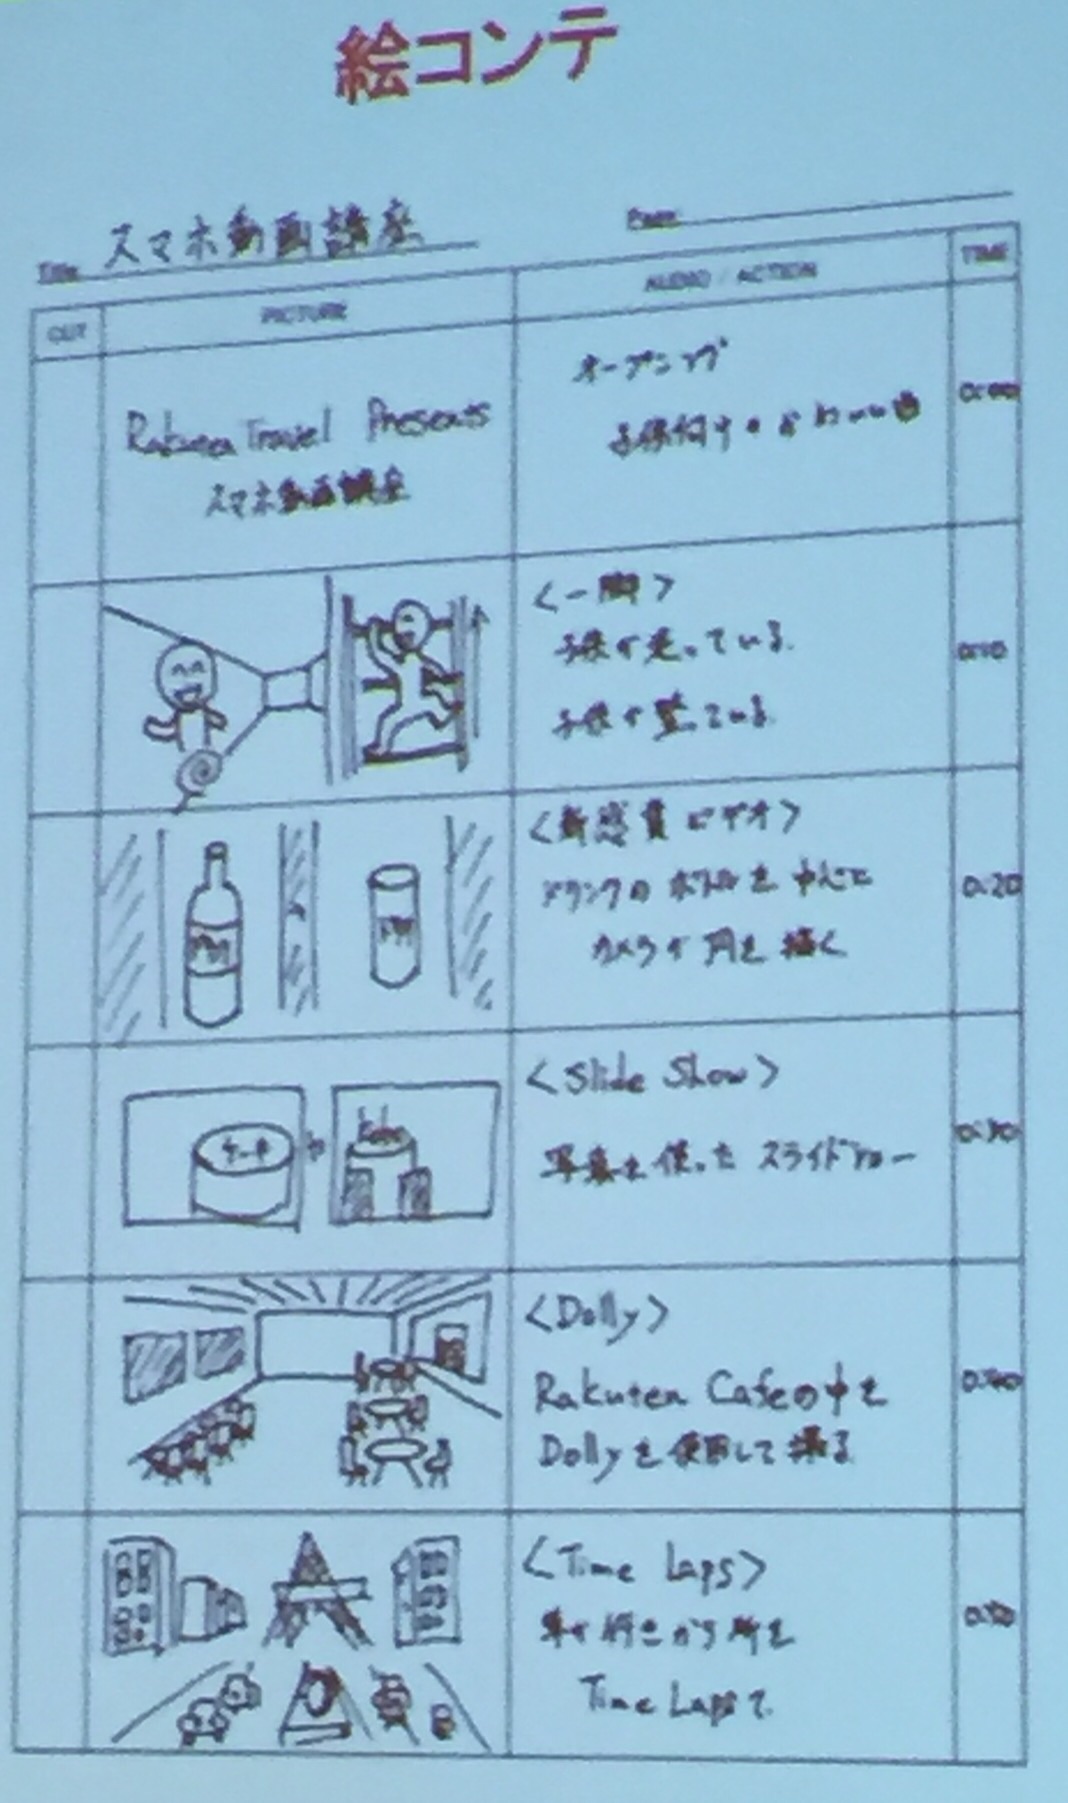 絵コンテ
Title スマホ動画講座
Page
CUT PICTURE AUDIO / ACTION TIME
Rakuten Travel Presents
スマホ動画講座
オープニング
0:00
<一脚>
子供が走っている
子供が登っている
0:10
<新感覚ビデオ>
ドリンクのボトルを中心に
カメラが円を描く
0:20
ケーキ
<Slide Show>
写真を使ったスライドショー
0:30
<Dolly>
Rakuten Cafeの中を
Dollyを使用して撮る
0:40
<Time Laps>
車が行きかう所を
Time Lapsで
0:50